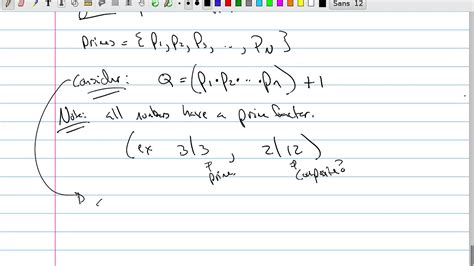 Sans 12
Primes = { P₁, P₂, P₃, ..., P_N }
Consider: Q = (P₁·P₂·...·P_n) + 1
Note: all numbers have a prime factor.
(ex 3|3 , 2|12)
prime composite